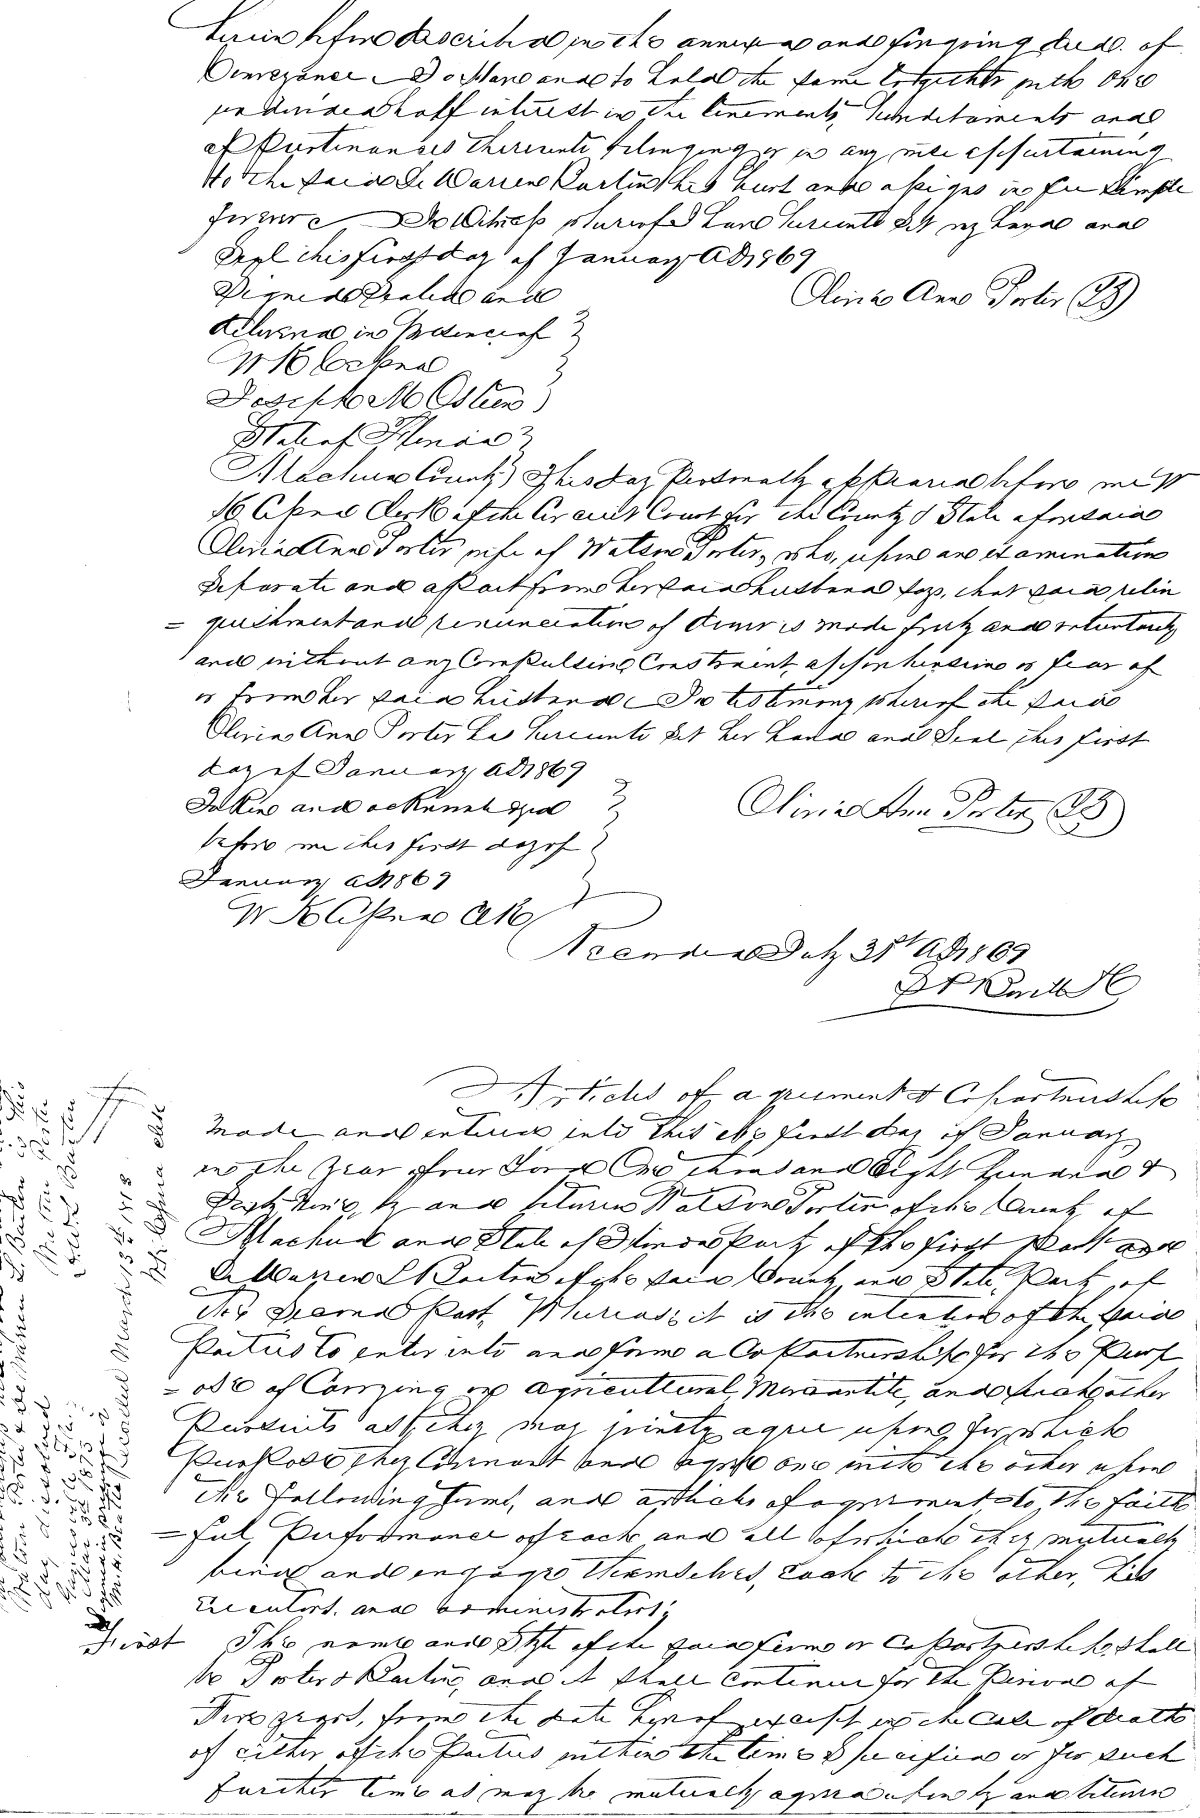 herein before described in the annexed and foregoing deed of
Conveyance To Have and to hold the same together with One
undivided half interest in the tenements, hereditaments and
appurtenances thereunto belonging or in any wise appertaining
to the said De Warren Barton his heirs and assigns in fee simple
forever In Witness whereof I have hereunto set my hand and
Seal this first day of January AD 1869
Signed Sealed and
Olivia Ann Porter
delivered in Presence of
W K Cessna
Joseph M Osteen
State of Florida
Alachua County This day Personally appeared before me W
K Cessna Clerk of the Circuit Court for the County & State aforesaid
Olivia Ann Porter, wife of Watson Porter, who, upon an examination
Separate and apart from her said husband says, that said relin
= quishment and renunciation of dower is made freely and voluntarily
and without any Compulsion, Constraint, apprehension or fear of
or from her said husband In testimony whereof the said
Olivia Ann Porter has hereunto set her hand and Seal this first
day of January AD 1869
Taken and acknowledged
Olivia Ann Porter
before me this first day of
January AD 1869
W K Cessna Clk
Recorded July 31st AD 1869
Articles of agreement & Copartnership
Made and entered into this the first day of January
in the year of our Lord One thousand Eight Hundred &
Sixty Nine, by and between Watson Porter of the County of
Alachua and State of Florida Party of the first Part and
De Warren L Barton of the said County and State, Part of
the Second Part, Whereas; it is the intention of the said
Parties to enter into and form a CoPartnership for the Purp
= ose of Carrying on agricultural, Mercantile, and such other
Pursuits as they may jointly agree upon, for which
Purpose they Covenant and agree one with the other upon
the following terms, and articles of agreement to the faith
= ful Performance of each and all of which they mutually
bind and engage themselves, each to the other, his
Executors, and administrators;
First The name and Style of the said firm or coPartnership, shall
be Porter & Barton, and it shall continue for the Period of
Five years, from the date hereof except in the Case of death
of either of the Parties within the time Specified or for such
further time as may be mutually agreed upon by and between
Watson Porter & De Warren L. Barton is this
day dissolved
Gainesville Fla.
Mar 3d 1873
Watson Porter
Recorded March 13th 1873
W. K. Cessna clk